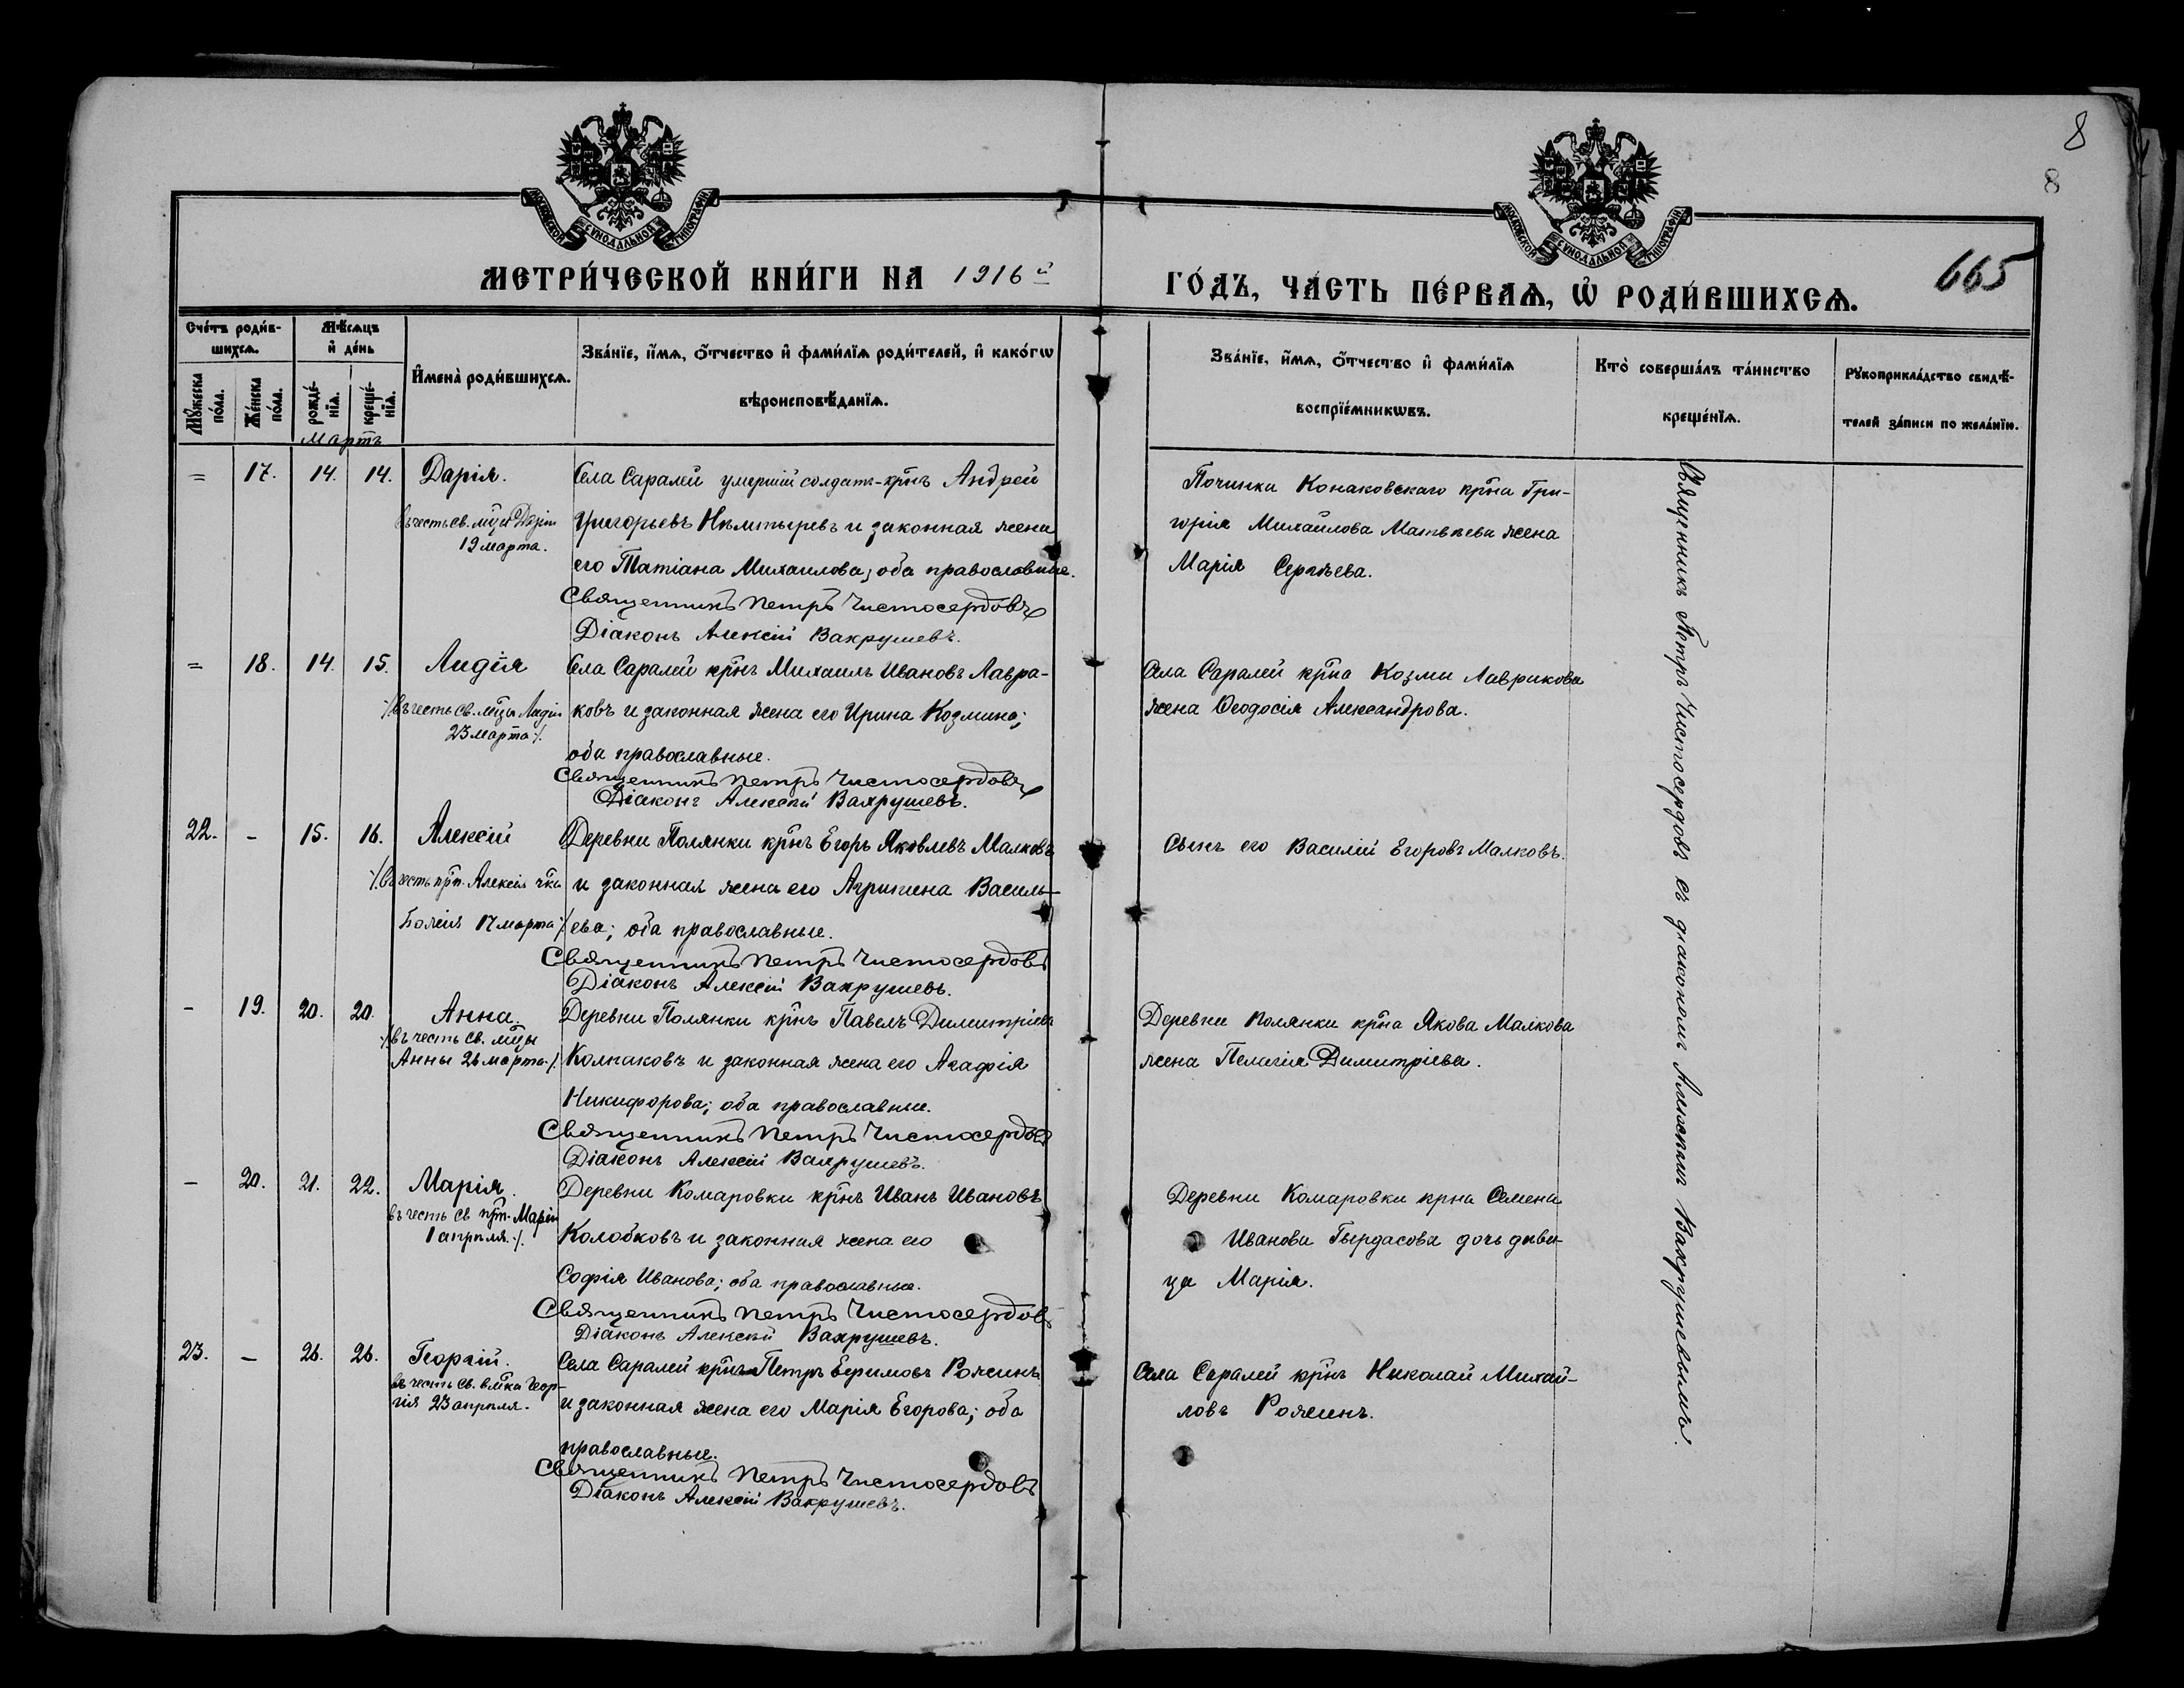 8
8
665
МОСКОВСКОЙ СУНОДАЛЬНОЙ ТИПОГРАФІИ
МОСКОВСКОЙ СУНОДАЛЬНОЙ ТИПОГРАФІИ
МЕТРИ́ЧЕСКОЙ КНИ́ГИ НА 1916й
ГО́ДЪ, ЧА́СТЬ ПЕ́РВАѦ, Ѡ҆ РОДИ́ВШИХСѦ.
Сче́тъ роди́в-
шихсѧ.
Мѣ́сѧцъ
и҆ де́нь
Му́жеска по́ла.
Же́нска по́ла.
рожде́-
нїѧ.
креще́-
нїѧ.
И҆мена̀ роди́вшихсѧ.
Зва́нїе, и҆́мѧ, ѻ҆́тчество и҆ фами́лїѧ роди́телей, и҆ како́гѡ
вѣроисповѣ́данїѧ.
Зва́нїе, и҆́мѧ, ѻ҆́тчество и҆ фами́лїѧ
воспрїе́мникѡвъ.
Кто̀ соверша́лъ та́инство
креще́нїѧ.
Рꙋкоприкла́дство свидѣ́-
телей за́писи по жела́нїю.
Мартъ
= 17. 14. 14. Дарія.
въ честь св. мцы Даріи
19 марта.
Села Саралей умершій солдатъ-крнъ Андрей
Григорьевъ Нѣмтыревъ и законная жена
его Татіана Михаилова; оба православные.
Священникъ Петръ Чистосердовъ
Діаконъ Алексій Вахрушевъ.
Починка Конаковскаго крна Гри-
горія Михайлова Матвѣева жена
Марія Сергѣева.
= 18. 14. 15. Лидія
./. въ честь св. мцы Лидіи
23 марта ./.
Села Саралей крнъ Михаилъ Ивановъ Лавра-
ковъ и законная жена его Ирина Козмина;
оба православные.
Священникъ Петръ Чистосердовъ
Діаконъ Алексій Вахрушевъ.
Села Саралей крна Козмы Лаврикова
жена Ѳеодосія Александрова.
22. - 15. 16. Алексій
./. въ честь прп. Алексія чка
Божія 17 марта ./.
Деревни Полянки крнъ Егоръ Яковлевъ Малковъ
и законная жена его Агрипина Василь-
ева; оба православные.
Священникъ Петръ Чистосердовъ
Діаконъ Алексій Вахрушевъ.
Сынъ его Василій Егоровъ Малковъ.
- 19. 20. 20. Анна.
./. въ честь св. мцы
Анны 26 марта ./.
Деревни Полянки крнъ Павелъ Димитріевъ
Колпаковъ и законная жена его Агафія
Никифорова; оба православные.
Священникъ Петръ Чистосердовъ
Діаконъ Алексій Вахрушевъ.
Деревни Полянки крна Якова Малкова
жена Пелагія Димитріева.
- 20. 21. 22. Марія.
въ честь св прп. Маріи
1 апрѣля ./.
Деревни Комаровки крнъ Иванъ Ивановъ
Колобковъ и законная жена его
Софія Иванова; оба православные.
Священникъ Петръ Чистосердовъ
Діаконъ Алексій Вахрушевъ.
Деревни Комаровки крна Семена
Иванова Гырдасова дочь дѣви-
ца Марія.
23. - 26. 26. Георгій.
въ честь св. влмка Геор-
гія 23 апрѣля.
Села Саралей крнъ Петръ Ефимовъ Рожинъ
и законная жена его Марія Егорова; оба
православные.
Священникъ Петръ Чистосердовъ
Діаконъ Алексій Вахрушевъ.
Села Саралей крнъ Николай Михай-
ловъ Рожинъ.
Священникъ Петръ Чистосердовъ съ діакономъ Алексіемъ Вахрушевымъ.